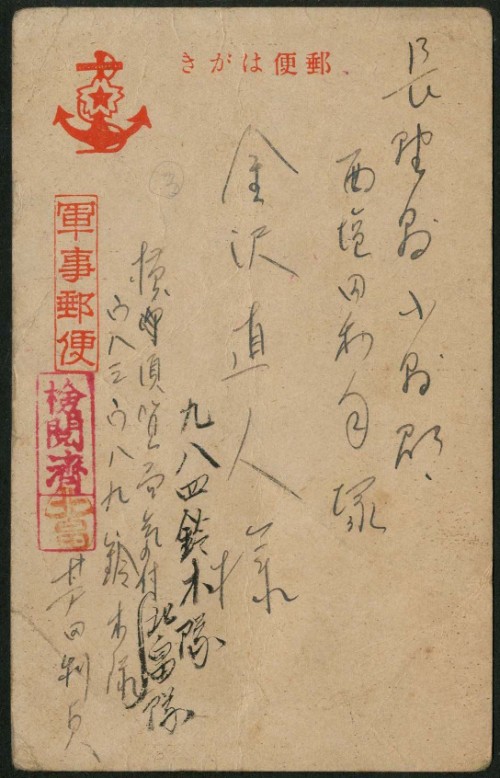 郵便はがき
長野縣小縣郡
西塩田村手塚
金沢直人様
九八四鈴木隊
北畠隊
横須賀局気付
ウ八三ウ八九 鈴木隊
軍事郵便
検閲済
北畠